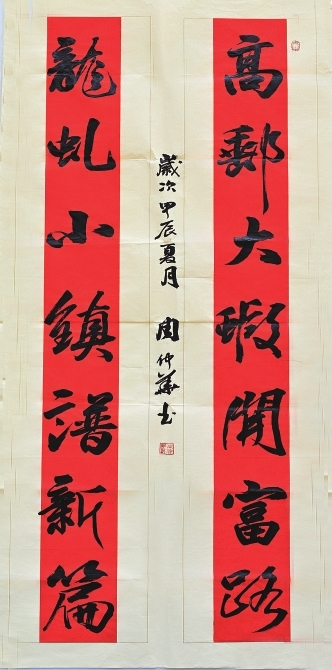 高郵大蝦開富路
龍虬小鎮譜新篇
歲次甲辰夏月 周仲華書